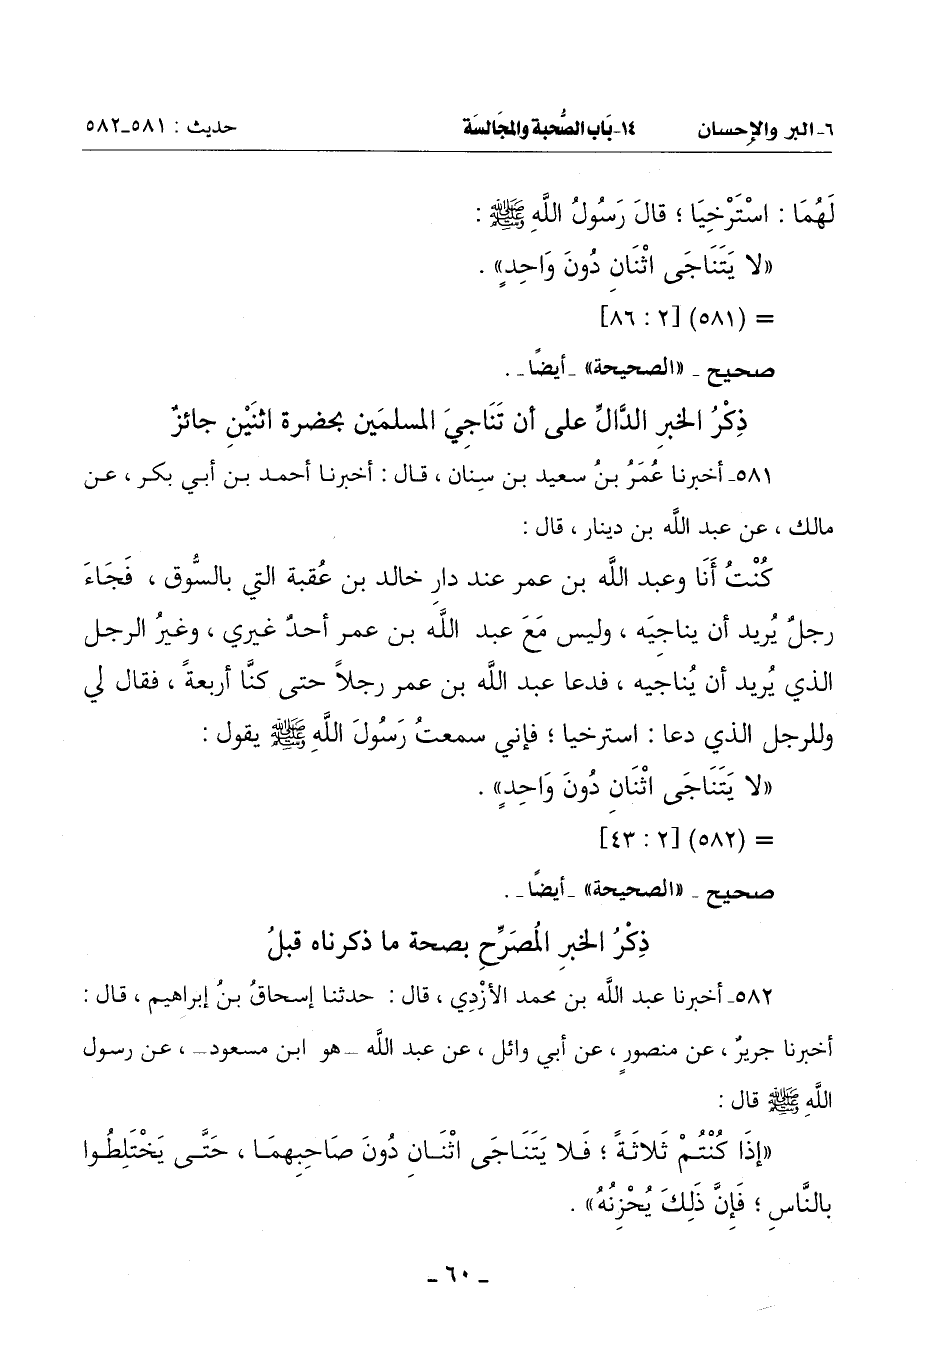 ٦- البر والإحسان ١٤- بَاب الصُّحبة والمجَالسَة حديث : ٥٨١-٥٨٢
لَهُمَا : اسْتَرْخِيَا ؛ قالَ رَسُولُ اللَّهِ ﷺ :
«لا يَتَنَاجَى اثْنَانِ دُونَ وَاحِدٍ» .
= (٥٨١) [٢ : ٨٦]
صحيح - «الصحيحة» -أيضًا- .
ذِكْرُ الخبرِ الدَّالِّ على أن تَنَاجِيَ المسلمَين بحضرة اثنَيْنِ جائزٌ
٥٨١- أخبرنا عُمَرُ بنُ سعيد بن سِنان ، قال : أخبرنا أحمد بن أبي بكر ، عن
مالك ، عن عبد اللَّه بن دينار ، قال :
كُنْتُ أَنَا وعبد اللَّه بن عمر عند دارِ خالد بن عُقبة التي بالسُّوق ، فَجَاءَ
رجلٌ يُريد أن يناجِيَه ، وليس مَعَ عبد اللَّه بن عمر أحدٌ غيري ، وغيرُ الرجل
الذي يُريد أن يُناجيه ، فدعا عبد اللَّه بن عمر رجلاً حتى كنَّا أربعةً ، فقال لي
وللرجل الذي دعا : استرخيا ؛ فإني سمعتُ رَسُولَ اللَّهِ ﷺ يقول :
«لا يَتَنَاجَى اثْنَانِ دُونَ وَاحِدٍ» .
= (٥٨٢) [٢ : ٤٣]
صحيح - «الصحيحة» -أيضًا- .
ذِكْرُ الخبرِ المُصَرِّحِ بصحة ما ذكرناه قبلُ
٥٨٢- أخبرنا عبد اللَّه بن محمد الأزْدِي ، قال : حدثنا إسحاقُ بنُ إبراهيم ، قال :
أخبرنا جريرٌ ، عن منصورٍ ، عن أبي وائل ، عن عبد اللَّه -هو ابن مسعود- ، عن رسول
اللَّهِ ﷺ قال :
«إذَا كُنْتُمْ ثَلاثَةً ؛ فَلا يَتَنَاجَى اثْنَانِ دُونَ صَاحِبِهِمَا ، حَتَّى يَخْتَلِطُوا
بالنَّاسِ ؛ فَإِنَّ ذَلِكَ يُحْزِنُهُ» .
- ٦٠ -